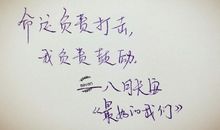 命运负责打击,
我负责鼓励。
——八月长安
《最好的我们》